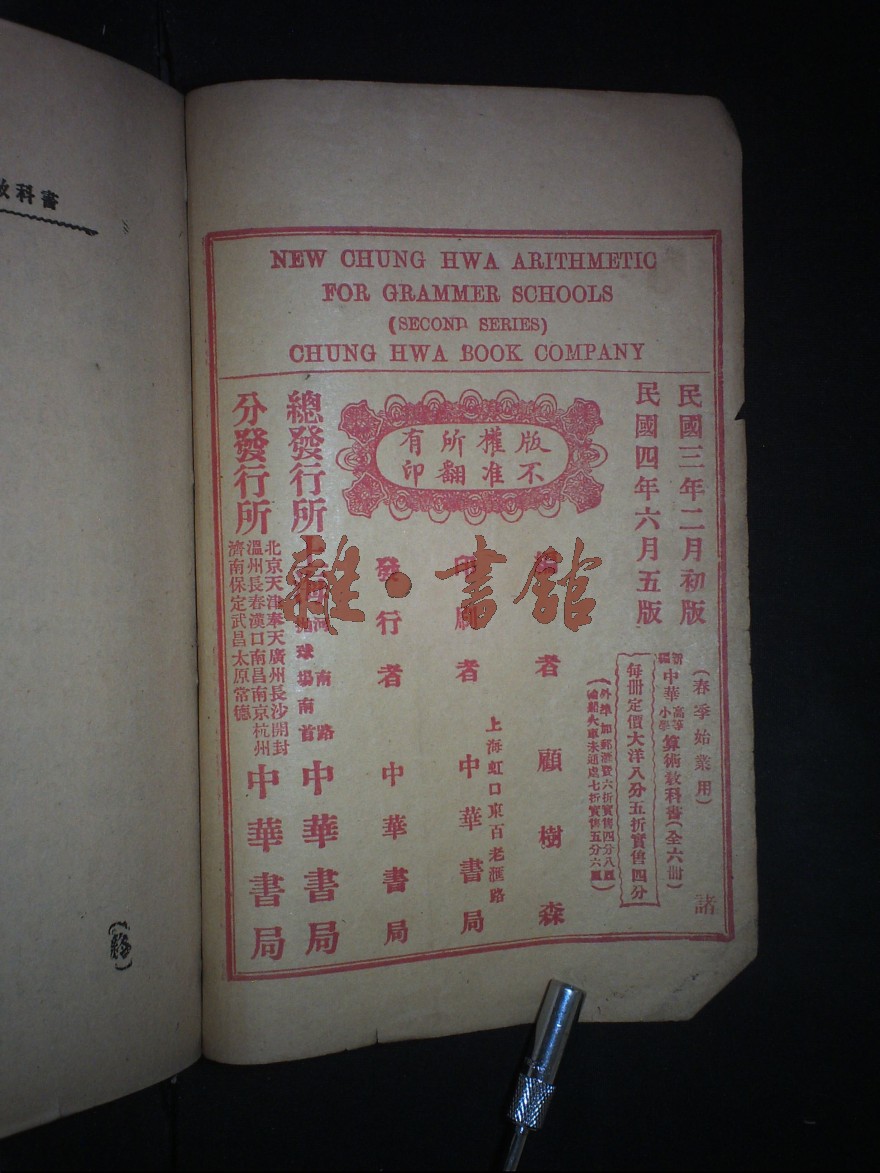 NEW CHUNG HWA ARITHMETIC
FOR GRAMMER SCHOOLS
(SECOND SERIES)
CHUNG HWA BOOK COMPANY
民國三年二月初版
民國四年六月五版
(春季始業用)
新編中華高等小學算術教科書(全六冊)
每冊定價大洋八分五折實售四分
版權所有
不准翻印
者 顧樹森
者 中華書局
上海虹口東百老滙路
發行者 中華書局
總發行所
球場南首
南路
中華書局
分發行所
北京天津奉天廣州長沙開封
溫州長春漢口南昌南京杭州
濟南保定武昌太原常德
中華書局
諸
雜·書館
科書